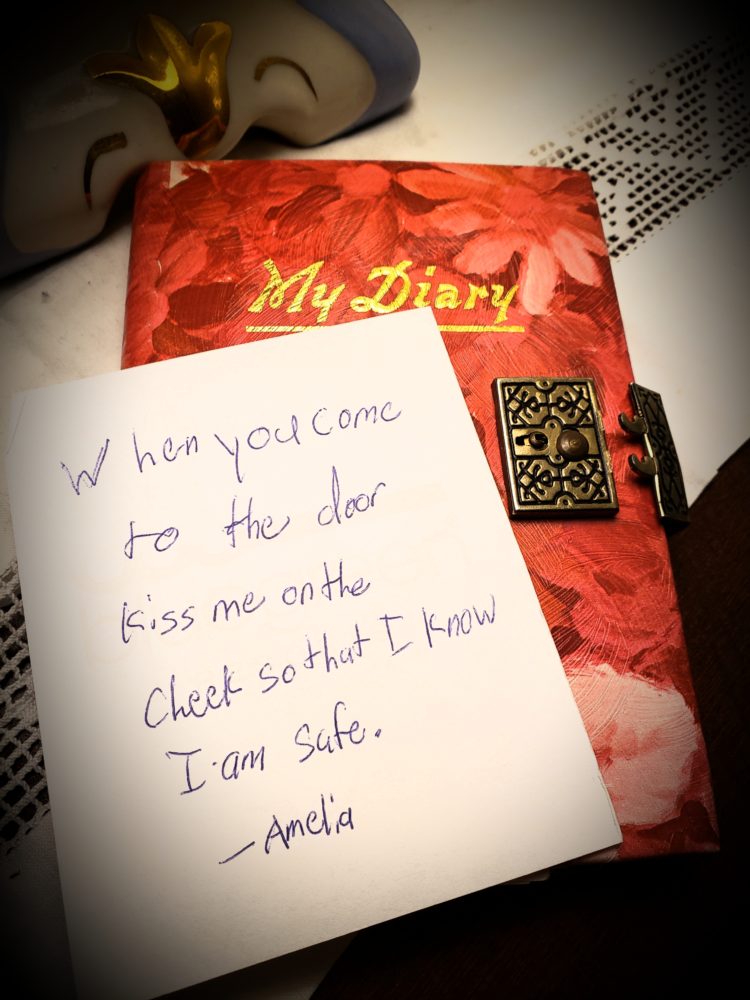 My Diary
When you come
to the door
kiss me on the
Cheek so that I know
I am safe.
– Amelia